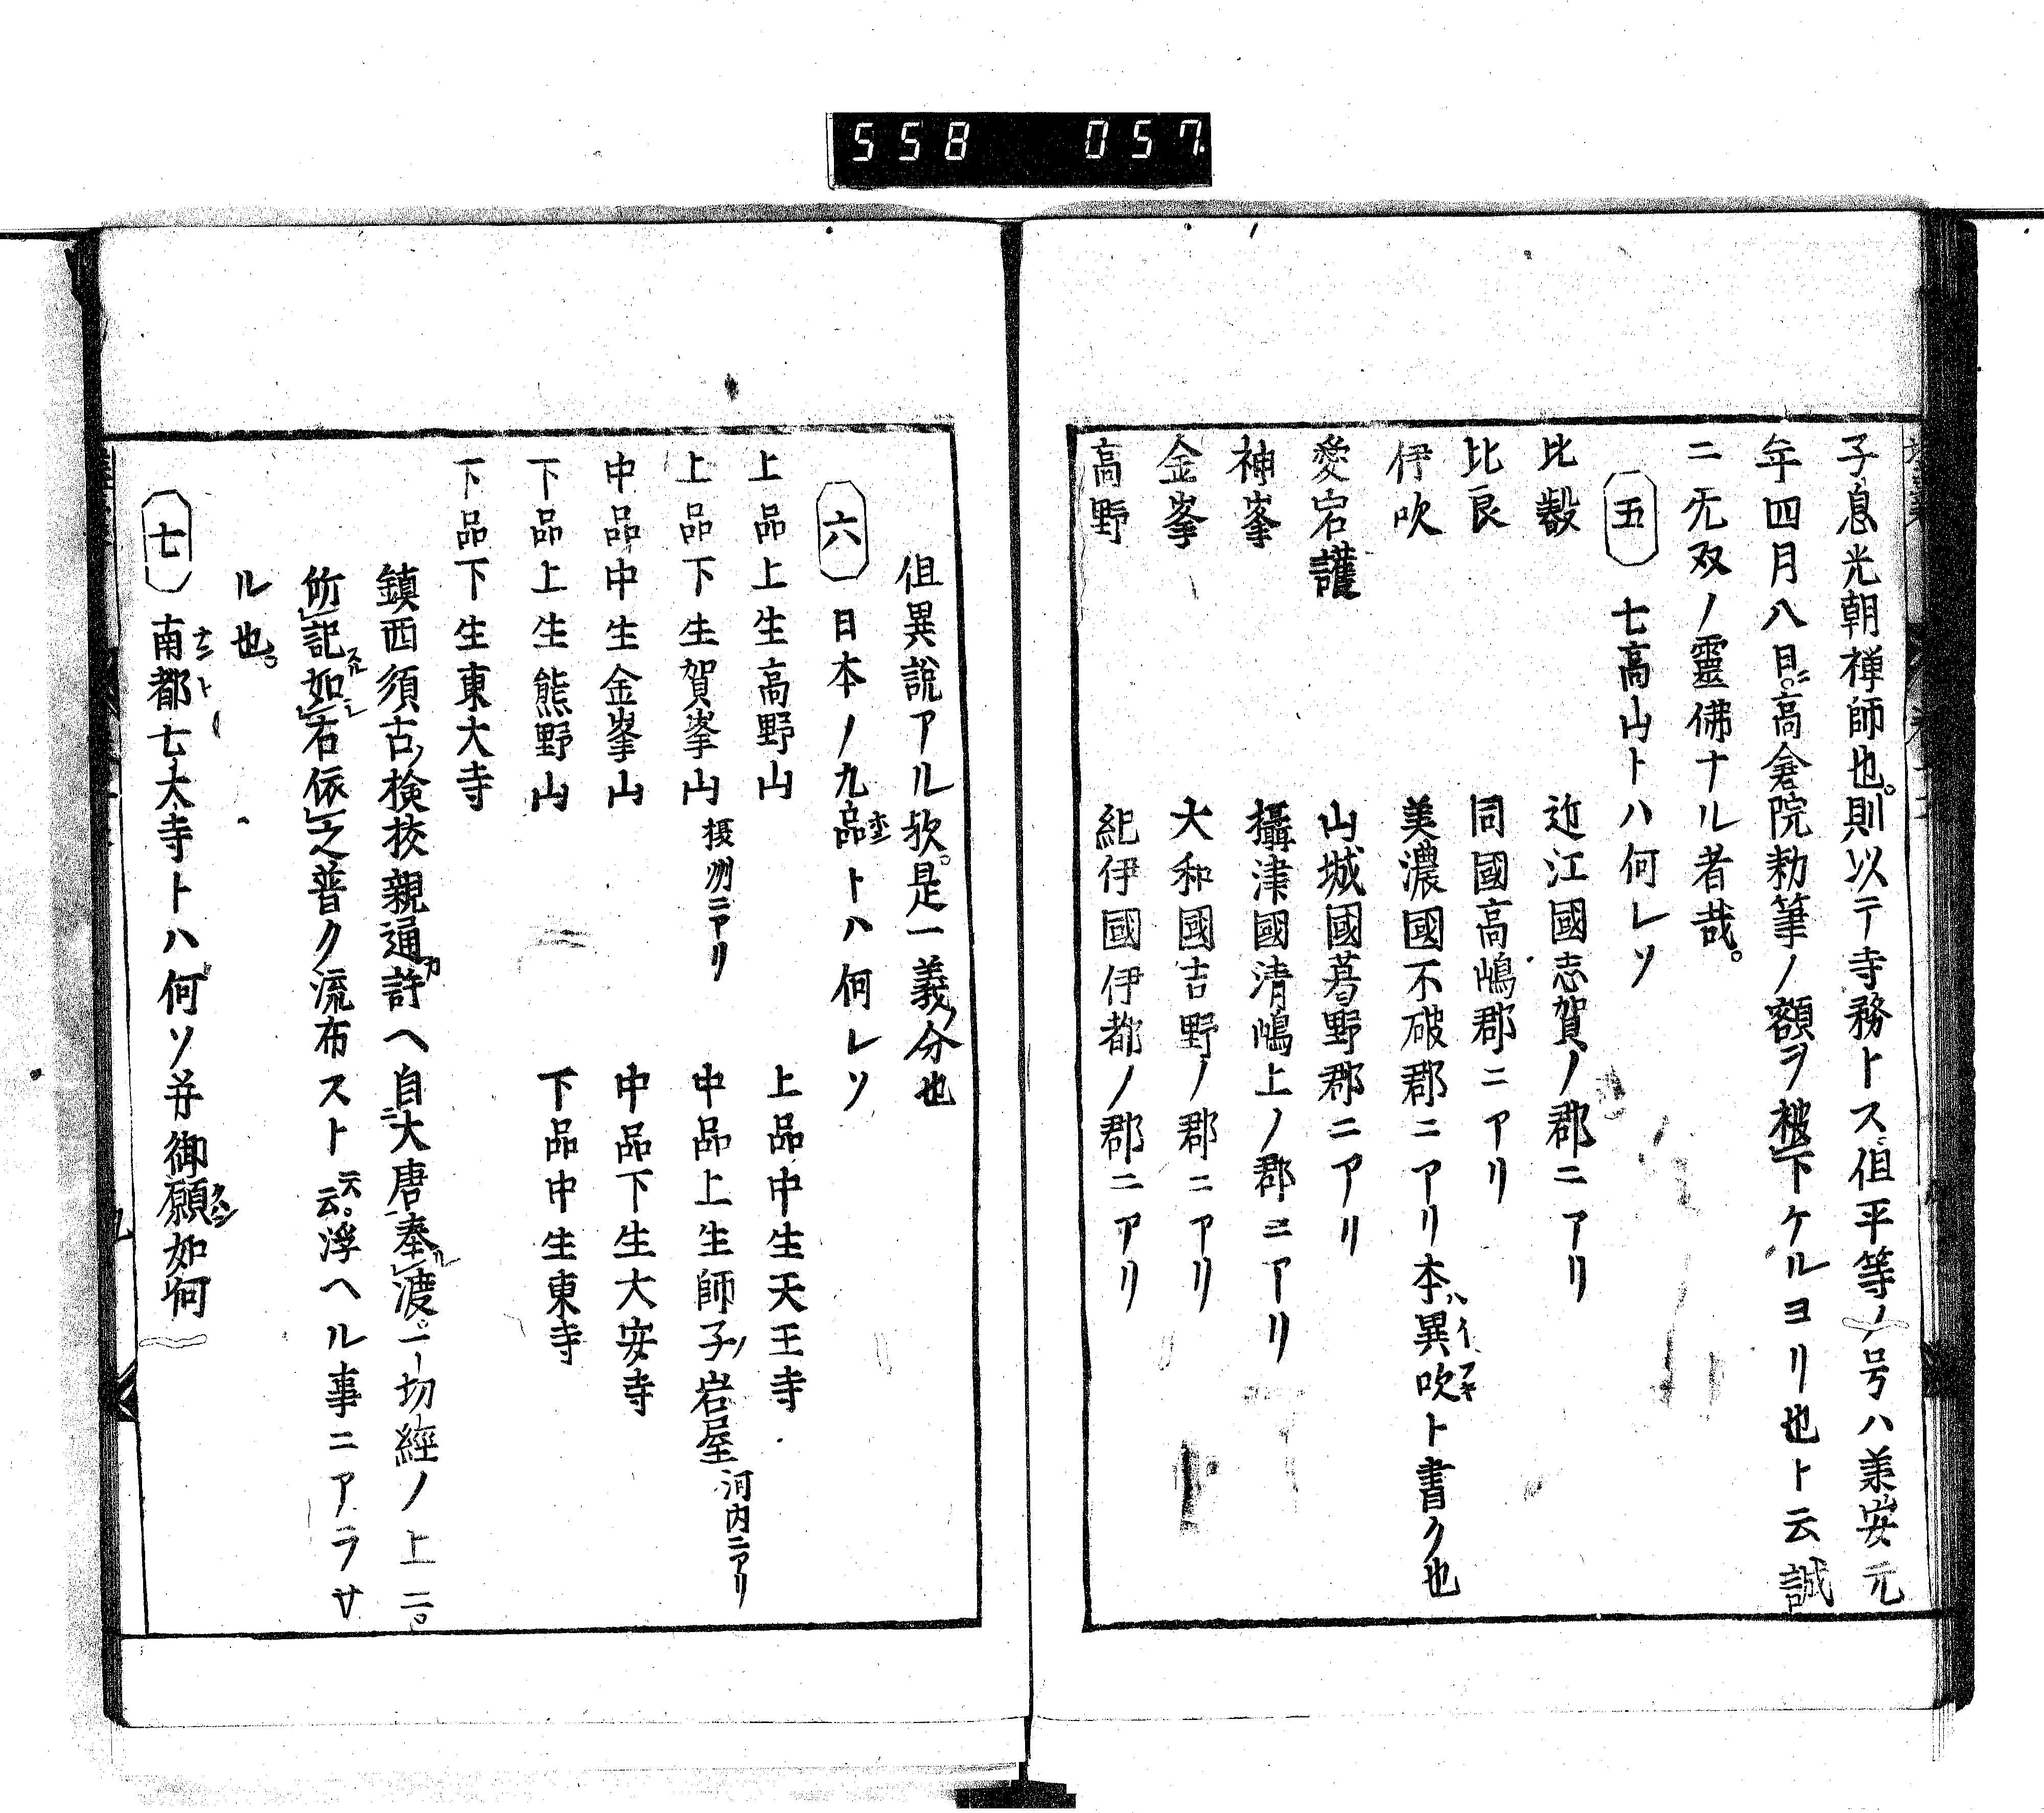 558 057
子息光朝禅師也。則以テ寺務トス。但平等ノ号ハ兼安元
年四月八日ニ。高倉院勅筆ノ額ヲ被下ケルヨリ也ト云誠
ニ无双ノ靈佛ナル者哉。
五 七高山トハ何レソ
比叡 近江國志賀ノ郡ニアリ
比良 同國高嶋郡ニアリ
伊吹 美濃國不破郡ニアリ本ハ異吹ト書ク也
愛宕護 山城國葛野郡ニアリ
神峯 攝津國清嶋上ノ郡ニアリ
金峯 大和國吉野ノ郡ニアリ
高野 紀伊國伊都ノ郡ニアリ
但異說アル欤。是一義ノ分也
六 日本ノ九品トハ何レソ
上品上生高野山 上品中生天王寺
上品下生賀峯山 摂州ニアリ 中品上生師子ノ岩屋 河内ニアリ
中品中生金峯山 中品下生大安寺
下品上生熊野山 下品中生東寺
下品下生東大寺
鎮西須古ノ検校親通許ヘ自大唐奉渡一切經ノ上ニ。
所記如右依之普ク流布スト云云。浮ヘル事ニアラサ
ル也。
七 南都七大寺トハ何ソ并御願如何